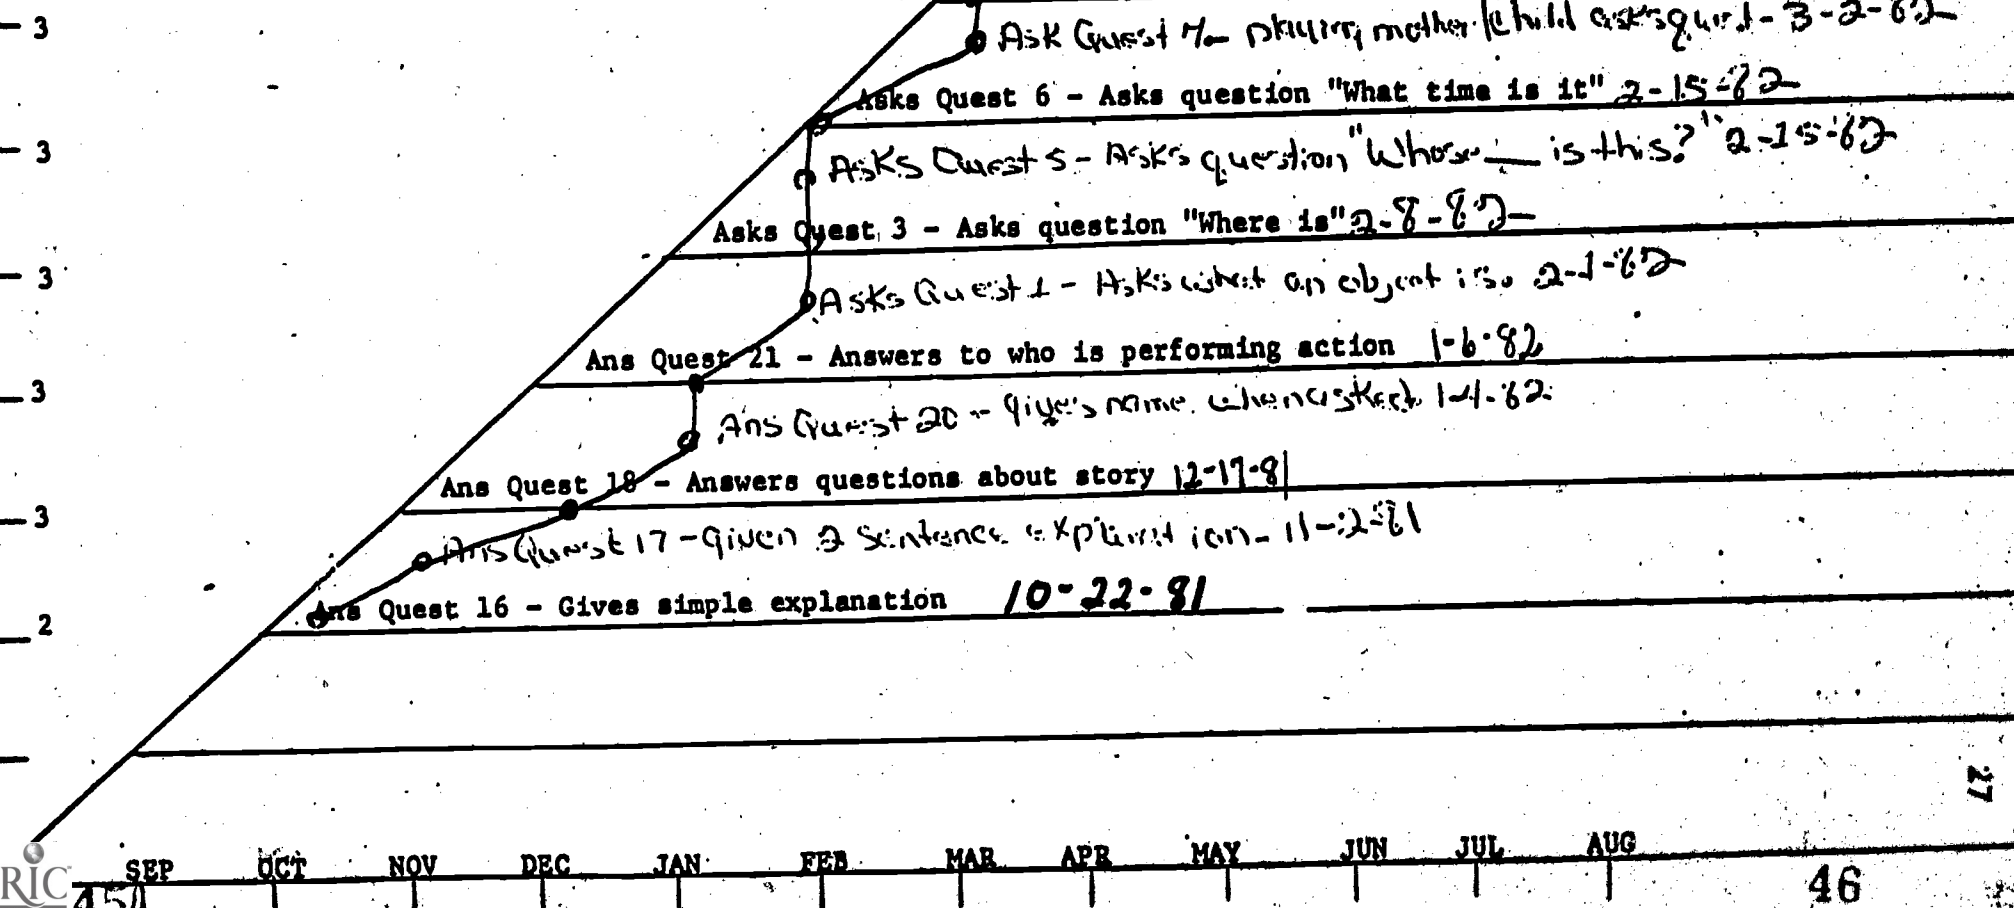 3
Ask Quest 7 - playing mother/child asks quest - 3-2-82
Asks Quest 6 - Asks question "What time is it" 2-15-82
3
Asks Quest 5 - Asks question "Whose __ is this?" 2-15-82
Asks Quest 3 - Asks question "Where is" 2-8-82
3
Asks Quest 1 - Asks what an object is. 2-1-82
Ans Quest 21 - Answers to who is performing action 1-6-82
3
Ans Quest 20 - gives name when asked. 1-4-82
Ans Quest 18 - Answers questions about story 12-17-81
3
Ans Quest 17 - given 2 sentence explanation - 11-2-81
Ans Quest 16 - Gives simple explanation 10-22-81
2
27
SEP OCT NOV DEC JAN FEB MAR APR MAY JUN JUL AUG
RIC
45
46